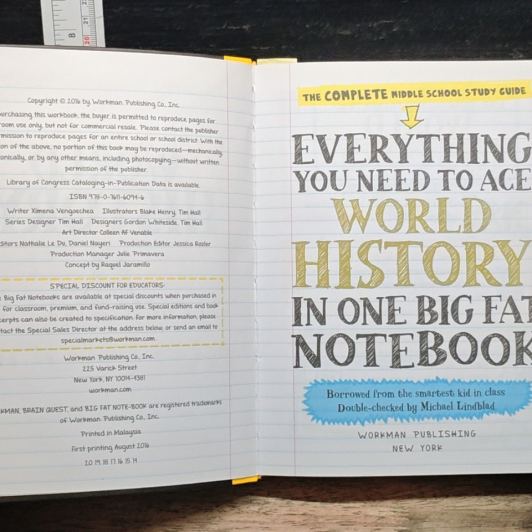 Copyright © 2016 by Workman Publishing Co., Inc.
purchasing this workbook, the buyer is permitted to reproduce pages for
room use only, but not for commercial resale. Please contact the publisher
mission to reproduce pages for an entire school or school district. With the
ion of the above, no portion of this book may be reproduced—mechanically,
onically, or by any other means, including photocopying—without written
permission of the publisher.
Library of Congress Cataloging-in-Publication Data is available.
ISBN 978-0-7611-6094-6
Writer Ximena Vengoechea Illustrators Blake Henry, Tim Hall
Series Designer Tim Hall Designers Gordon Whiteside, Tim Hall
Art Director Colleen AF Venable
ditors Nathalie Le Du, Daniel Nayeri Production Editor Jessica Rozler
Production Manager Julie Primavera
Concept by Raquel Jaramillo
SPECIAL DISCOUNT FOR EDUCATORS:
Big Fat Notebooks are available at special discounts when purchased in
for classroom, premium, and fund-raising use. Special editions and book
cerpts can also be created to specification. For more information, please
tact the Special Sales Director at the address below, or send an email to
specialmarkets@workman.com.
Workman Publishing Co., Inc.
225 Varick Street
New York, NY 10014-4381
workman.com
KMAN, BRAIN QUEST, and BIG FAT NOTEBOOK are registered trademarks
of Workman Publishing Co., Inc.
Printed in Malaysia
First printing August 2016
20 19 18 17 16 15 14
THE COMPLETE MIDDLE SCHOOL STUDY GUIDE
EVERYTHING
YOU NEED TO ACE
WORLD
HISTORY
IN ONE BIG FAT
NOTEBOOK
Borrowed from the smartest kid in class
Double-checked by Michael Lindblad
WORKMAN PUBLISHING
NEW YORK